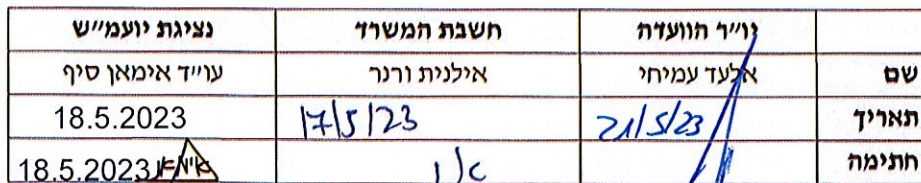 יו״ר הוועדה חשבת המשרד נציגת יועמ״ש
שם אלעד עמיחי אילנית ורנר עו״ד אימאן סיף
תאריך 21/5/23 17/5/23 18.5.2023
חתימה 18.5.2023